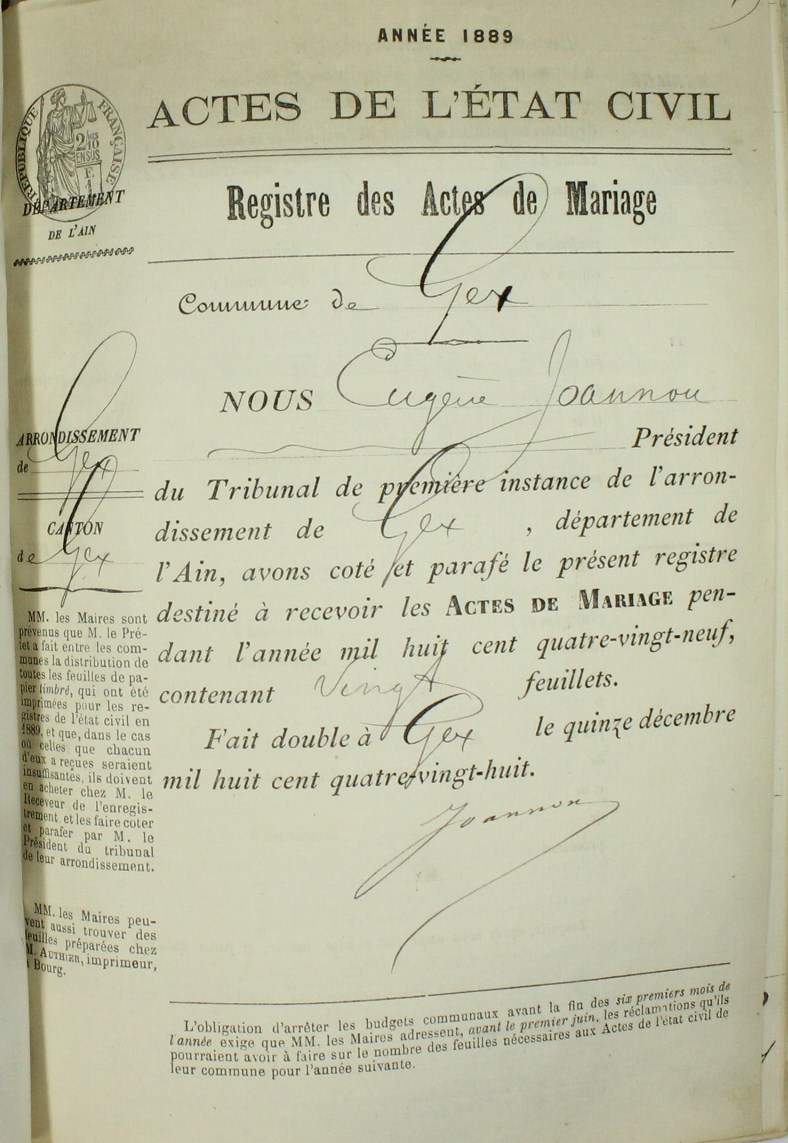 ANNÉE 1889
ACTES DE L'ÉTAT CIVIL
RÉPUBLIQUE FRANÇAISE
2/10 EN SUS
DÉPARTEMENT
DE L'AIN
Registre des Actes de Mariage
Commune de Gex
ARRONDISSEMENT
de Gex
CANTON
de Gex
MM. les Maires sont
prévenus que M. le Pré-
fet a fait entre les com-
munes la distribution de
toutes les feuilles de pa-
pier timbré, qui ont été
imprimées pour les re-
gistres de l'état civil en
1889, et que, dans le cas
où celles que chacun
d'eux a reçues seraient
insuffisantes, ils doivent
en acheter chez M. le
Receveur de l'enregis-
trement et les faire coter
et parafer par M. le
Président du tribunal
de leur arrondissement.
MM. les Maires peu-
vent aussi trouver des
feuilles préparées chez
M. AUTHIER, imprimeur,
à Bourg.
NOUS Eugène Joannon
Président
du Tribunal de première instance de l'arron-
dissement de Gex , département de
l'Ain, avons coté et parafé le présent registre
destiné à recevoir les ACTES DE MARIAGE pen-
dant l'année mil huit cent quatre-vingt-neuf,
contenant vingt feuillets.
Fait double à Gex le quinze décembre
mil huit cent quatre-vingt-huit.
Joannon
L'obligation d'arrêter les budgets communaux avant la fin des six premiers mois de
l'année exige que MM. les Maires adressent, avant le premier juin, les réclamations qu'ils
pourraient avoir à faire sur le nombre des feuilles nécessaires aux Actes de l'état civil de
leur commune pour l'année suivante.